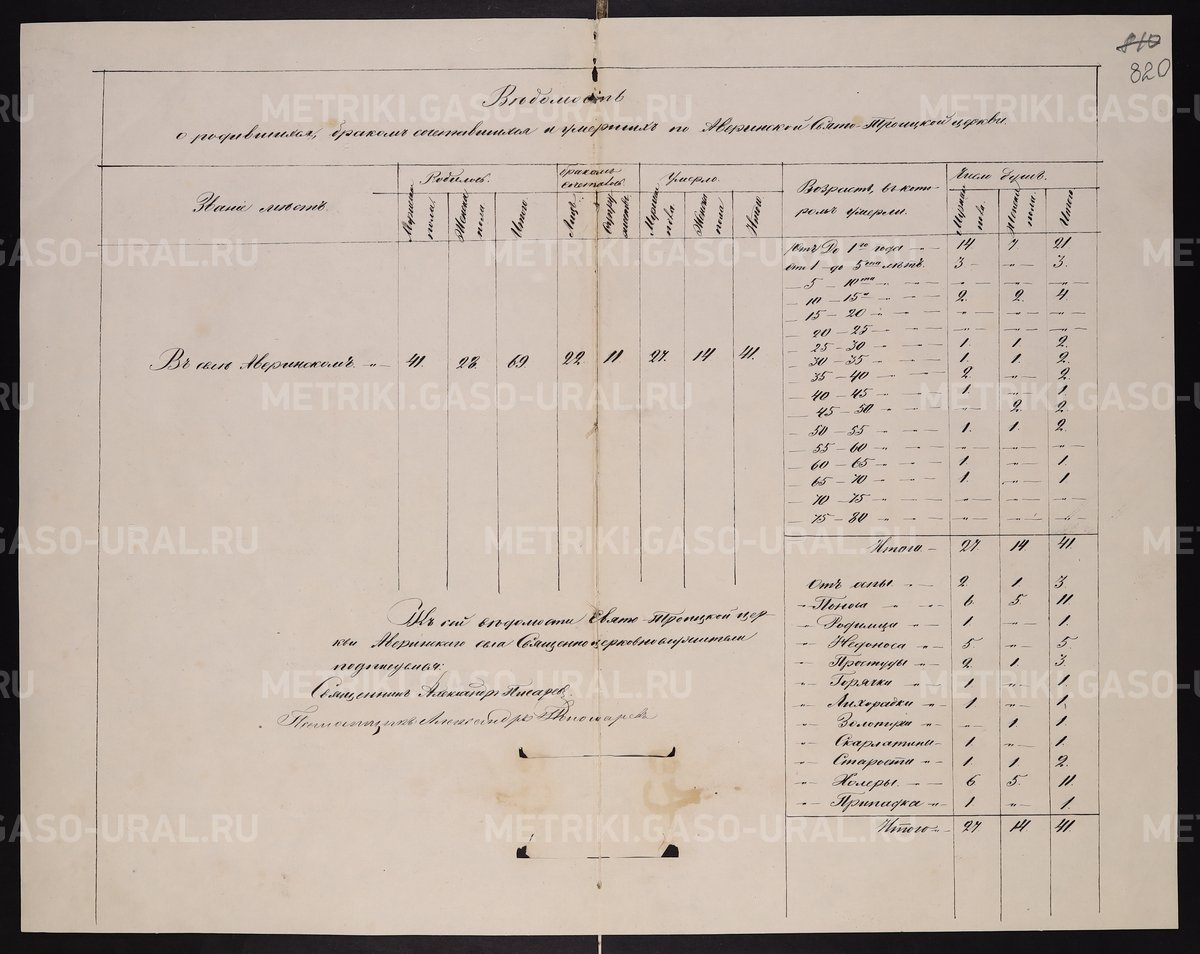 810
820
Вѣдомость
о родившихся, бракомъ сочетавшихся и умершихъ по Аверинской Свято-Троицкой церкви.
Званіе мѣстъ. Родилось. Бракомъ сочеталось. Умерло. Возрастъ, въ которомъ умерли. Число душъ.
Мужска пола. Женска пола Итого Лицъ. Мужска пола. Женска пола Итого Мужска пола. Женска пола. Итого
Отъ До 1го года - „ - 14 7 21
от 1 - до 5ти лѣтъ. 3 - „ - 3.
- 5 - 10ти - „ - „ - „ - „
- 10 - 15и - „ - 2. 2. 4.
- 15 - 20 - „ - „ - „ - „
- 20 - 25 - „ - „ - „ - „
- 25 - 30 - „ - 1. 1. 2.
- 30 - 35 - „ - 1. 1. 2.
Въ селѣ Аверинскомъ. - „ - 41. 28. 69. 22. 11 27. 14 41.
- 35 - 40 - „ - 2. - „ - 2.
- 40 - 45 - „ - 1. - „ - 1.
- 45 - 50 - „ - „ - 2. 2.
- 50 - 55 - „ - 1. 1. 2.
- 55 - 60 - „ - „ - „ - „
- 60 - 65 - „ - 1. - „ - 1.
- 65 - 70 - „ - 1. - „ - 1
- 70 - 75 - „ - „ - „ - „
- 75 - 80 - „ - „ - „ - „
Итого - 27. 14. 41.
Отъ оспы - „ - 2. 1. 3.
- „ - Поноса - „ - 6. 5. 11.
- „ - Родимца - „ - 1 - „ - 1.
- „ - Недоноса - „ - 5. - „ - 5.
- „ - Простуды - „ - 2. 1. 3.
- „ - Горячки - „ - 1 - „ - 1.
- „ - Лихорадки - „ - 1 - „ - 1.
- „ - Золотухи - „ - „ - 1 1.
- „ - Скарлатины - 1. - „ - 1.
- „ - Старости - „ - 1. 1. 2.
- „ - Холеры. - „ - 6. 5. 11.
- „ - Припадка - „ - 1 - „ - 1.
Итого - „ - 27 14 41.
Къ сей вѣдомости Свято-Троицкой цер-
кви Аверинскаго села Священноцерковнослужители
подписуемся:
Священникъ Александр Писарев.
Александръ Пономаревъ
METRIKI.GASO-URAL.RU